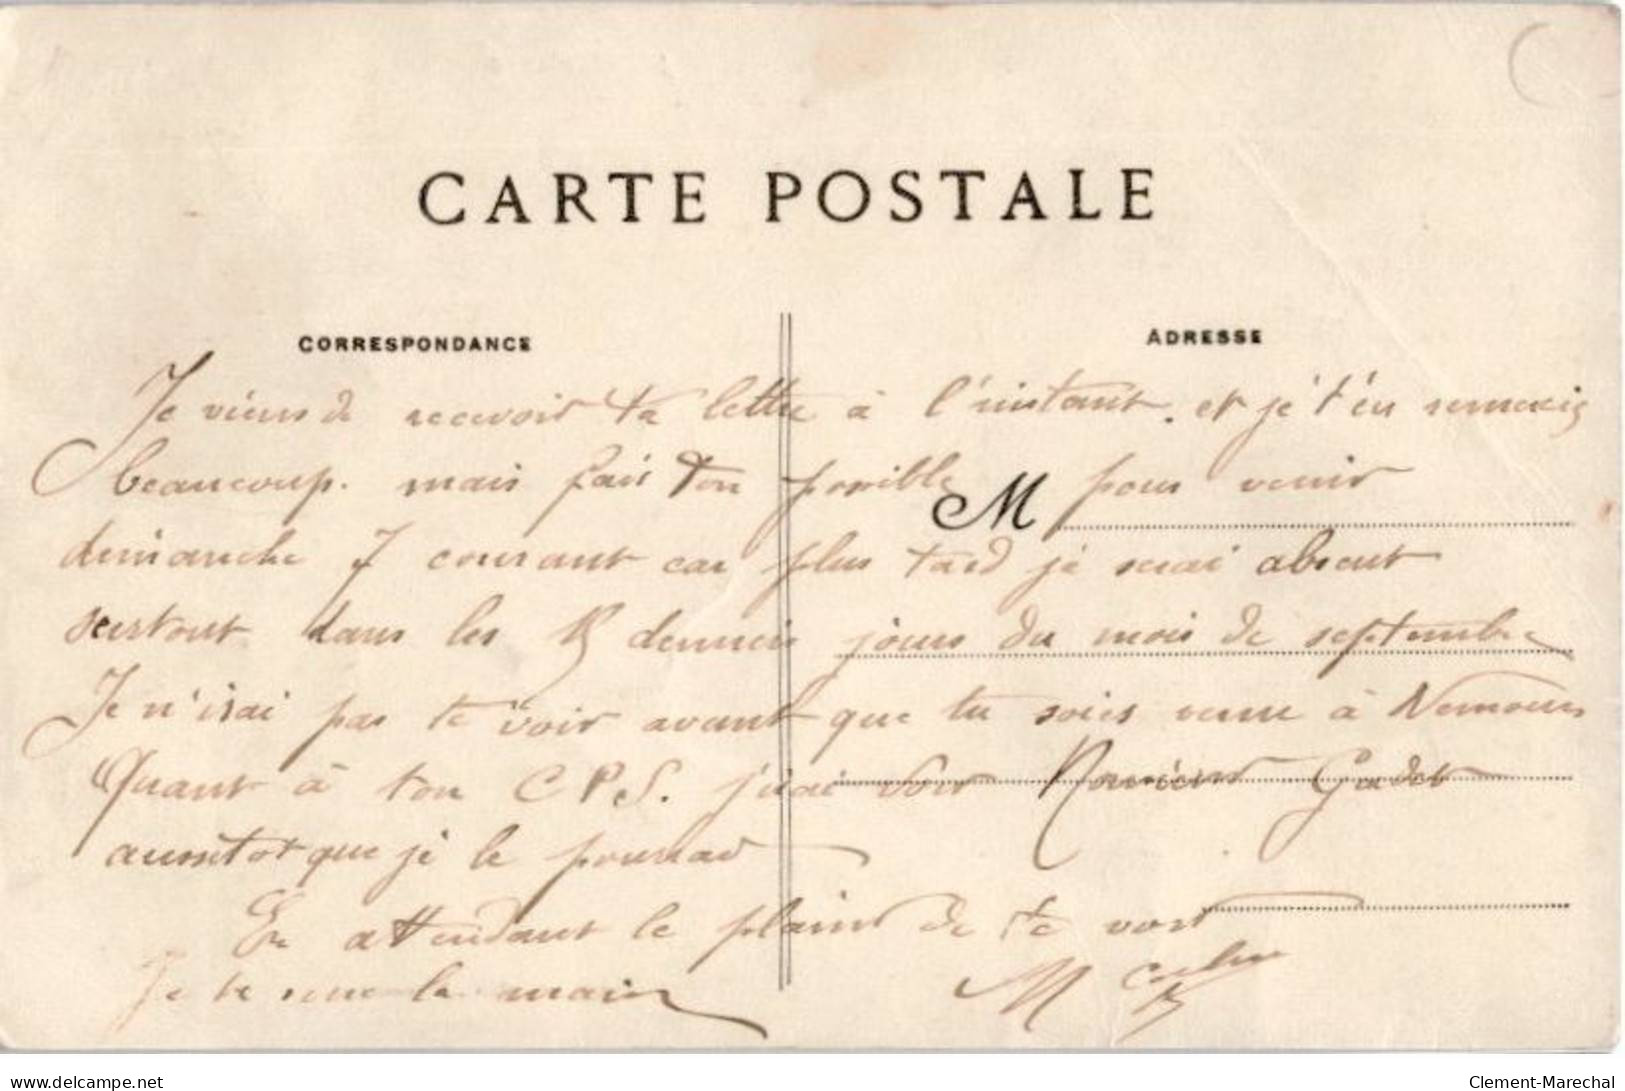 CARTE POSTALE
CORRESPONDANCE
ADRESSE
Je viens de recevoir ta lettre à l'instant. et je t'en remercie
beaucoup. mais fais ton possible M pour venir
dimanche 7 courant car plus tard je serai absent
surtout dans les 15 derniers jours du mois de septembre
Je n'irai pas te voir avant que tu sois venu à Nemours
Quant à ton CPS. j'irai voir Monsieur Gadet
aussitot que je le pourrai
En attendant le plaisir de te voir
Je te serre la main
M
www.delcampe.net
Clement-Marechal